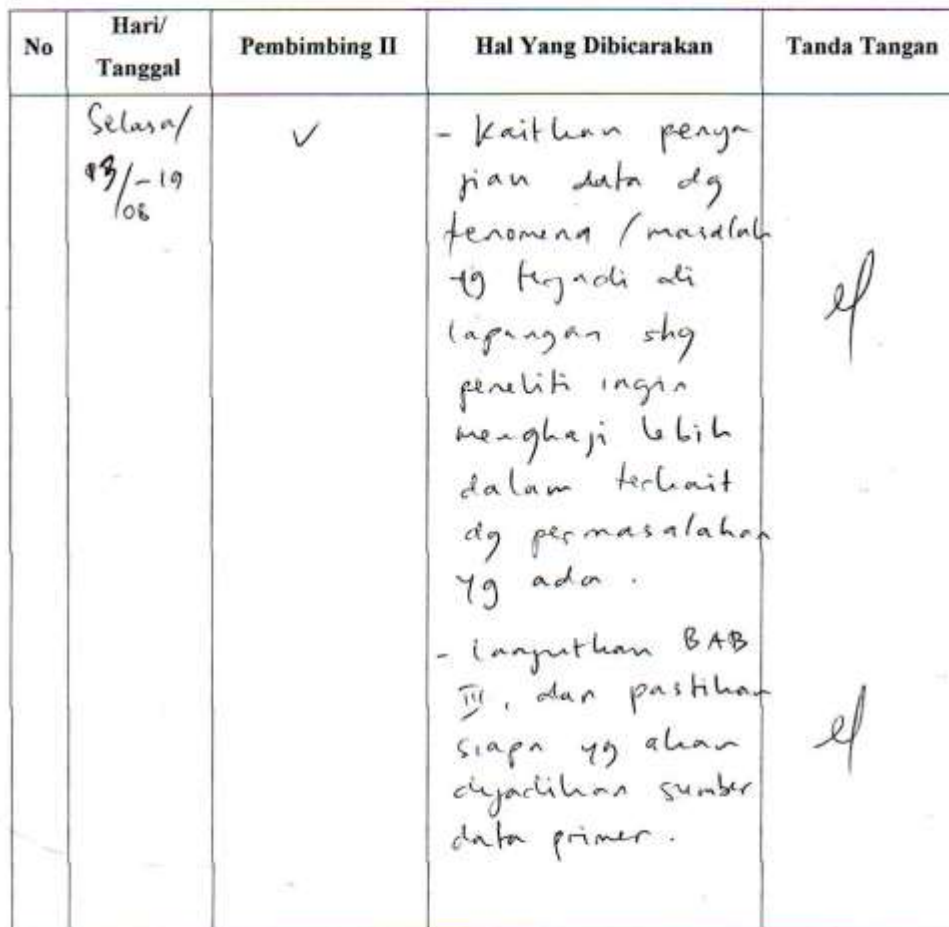 No
Hari/
Tanggal
Pembimbing II
Hal Yang Dibicarakan
Tanda Tangan
Selasa/
13/-19
08
✓
- Kaitkan penya
jian data dg
fenomena / masalah
yg terjadi di
lapangan shg
peneliti ingin
mengkaji lebih
dalam terkait
dg permasalahan
yg ada.
- Lanjutkan BAB
III, dan pastikan
siapa yg akan
dijadikan sumber
data primer.